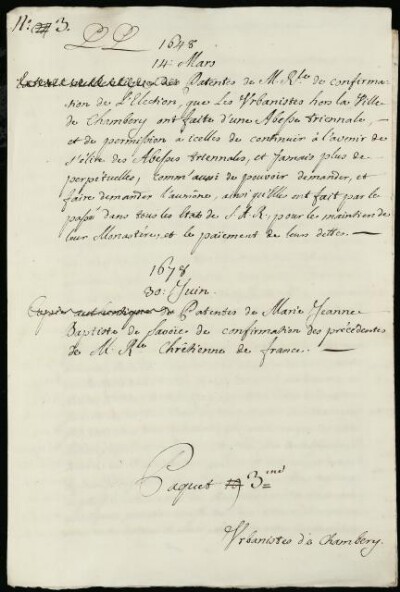 N.º 3.
PP
1648
14. Mars
des Patentes de M. R.le de confirma-
tion de l'Election, que les Urbanistes hors la Ville
de Chambery ont faite d'une Abesse triennale, -
et de permission à icelles de continuer à l'avenir de
s'élire des Abesses triennales, et jamais plus de
perpétuelles, comm'aussi de pouvoir demander, et
faire demander l'aumône, ainsi qu'Elles ont fait par le
passé dans tous les Etats de S. A. R., pour le maintien de
leur Monastère, et le païement de leurs dettes. -
1678
30. Juin.
Copie authentique de Patentes de Marie Jeanne
Baptiste de Savoie de confirmation des précédentes
de M. R.le Chrêtienne de france. -
Paquet 19 3.me
Urbanistes de Chambery.